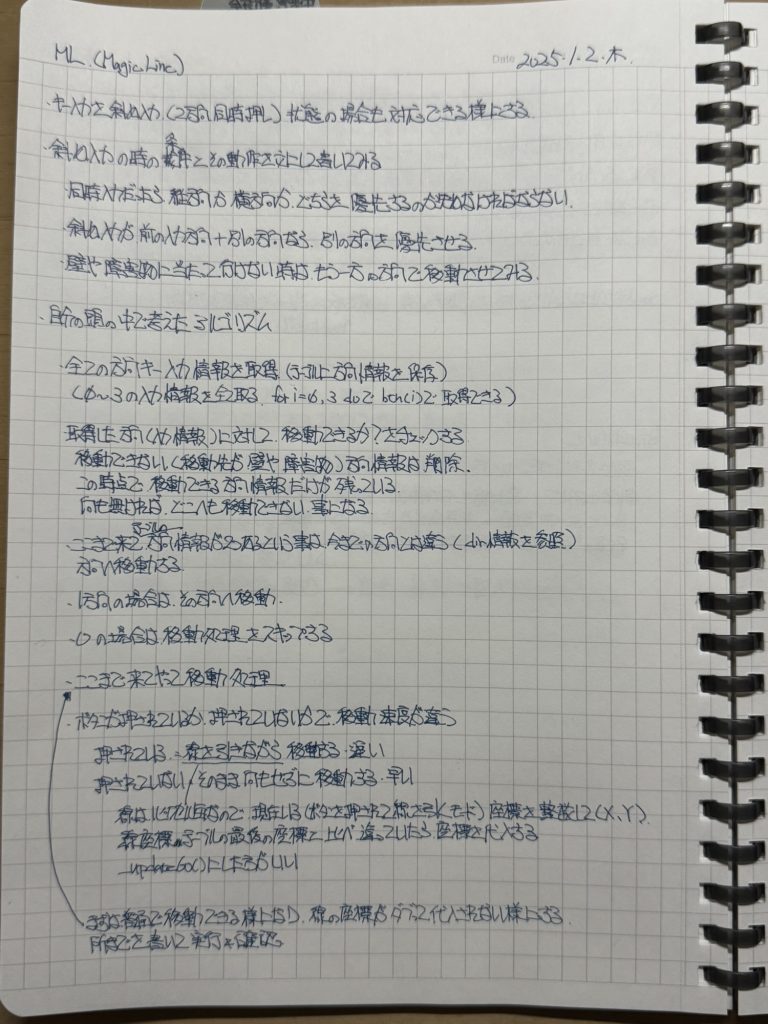 ML.(Magic Line.)
Date 2025.1.2.木.
・キー入力を斜め入力(2方向同時押し)状態の場合も対応できる様にする
・斜め入力の時の条件とその動作を文にして書いてみる
同時入力だったら縦方向か横方向か、どちらを優先するのか決めなければならない、
・斜め入力が前の入力方向+別の方向なら、別の方向を優先させる。
・壁や障害物に当たって行けない時は、もう一方の方向で移動させてみる、
・自分の頭の中で考えたアルゴリズム
・全ての方向キー入力情報を取得(テーブルに方向情報を保存)
(0〜3の入力情報を全取る、for i=0,3 doで btn(i)で取得できる)
取得した方向(入力情報)に対して、移動できるか?をチェックする
移動できない(移動先が壁や障害物)方向情報は削除、
この時点で移動できる方向情報だけが残っている
何も無ければ、どこへも移動できない事になる
・ここまで来てテーブルの方向情報が2つあるという事は、今までの方向とは違う(dir情報を参照)
方向へ移動する
・1方向の場合は、その方向へ移動、
・0の場合は移動処理をスキップする
・ここまで来てやっと移動処理
・ボタンが押されているか、押されていないかで、移動速度が違う
押されている=線を引きながら移動する・遅い
押されていない/そのまま何もせずに移動する・早い
現在いる(ボタンを押されて線を引くモード)座標を整数して(X,Y)
線座標テーブルの最後の座標と比べ違っていたら座標を代入する
_update60()にした方がいい
まずは各自で移動できる様になり、線の座標がダブって代入されない様にする
所までを書いて実行&確認